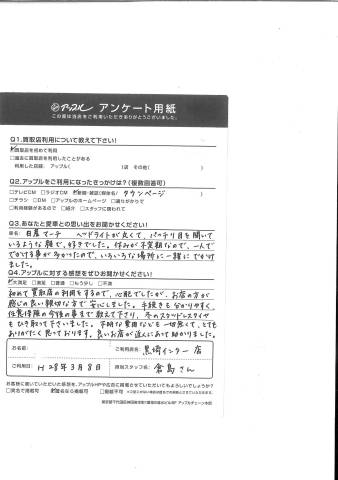 アップル アンケート用紙
この度は当店をご利用いただきありがとうございました。
Q1.買取店利用について教えて下さい!
☑買取店を初めて利用
□過去に買取店を利用したことがある
利用した店舗: アップル( )店 その他( )
Q2.アップルをご利用になったきっかけは?(複数回答可)
□テレビCM □ラジオCM ☑新聞・雑誌(媒体名: タウンページ )
□チラシ □DM □アップルのホームページ □通りがかりで
□利用経験があるので □紹介 □スタッフに誘われて
Q3.あなたと愛車との思い出をお聞かせください!
車名: 日産マーチ ヘッドライトが丸くて、パッチリ目を開いて
いるような顔で、好きでした。休みが不定期なので、一人で
でかける事が多かったので、いろいろな場所に一緒にでかけ
ました。
Q4.アップルに対する感想をぜひお聞かせください!
☑大満足 □満足 □普通 □もう少し □不満
初めて買取店の利用をするので、心配でしたが、お店の方が
感じの良い親切な方で安心しました。手続きも分かりやすく
任意保険の今後の事まで教えて下さり、冬のスタッドレスタイヤ
もひき取って下さいました。不明な費用なども一切無くて、とても
ありがたく思っております。良いお店が近くにあって助かりました。
お名前:
ご利用店名: 黒埼インター店
ご利用日: H28年3月8日
担当スタッフ名: 倉島さん
お客様に書いていただいた感想を、アップルHPや広告に掲載させていただいてもよろしいでしょうか?
□実名で掲載可 ☑匿名なら掲載可 □掲載不可